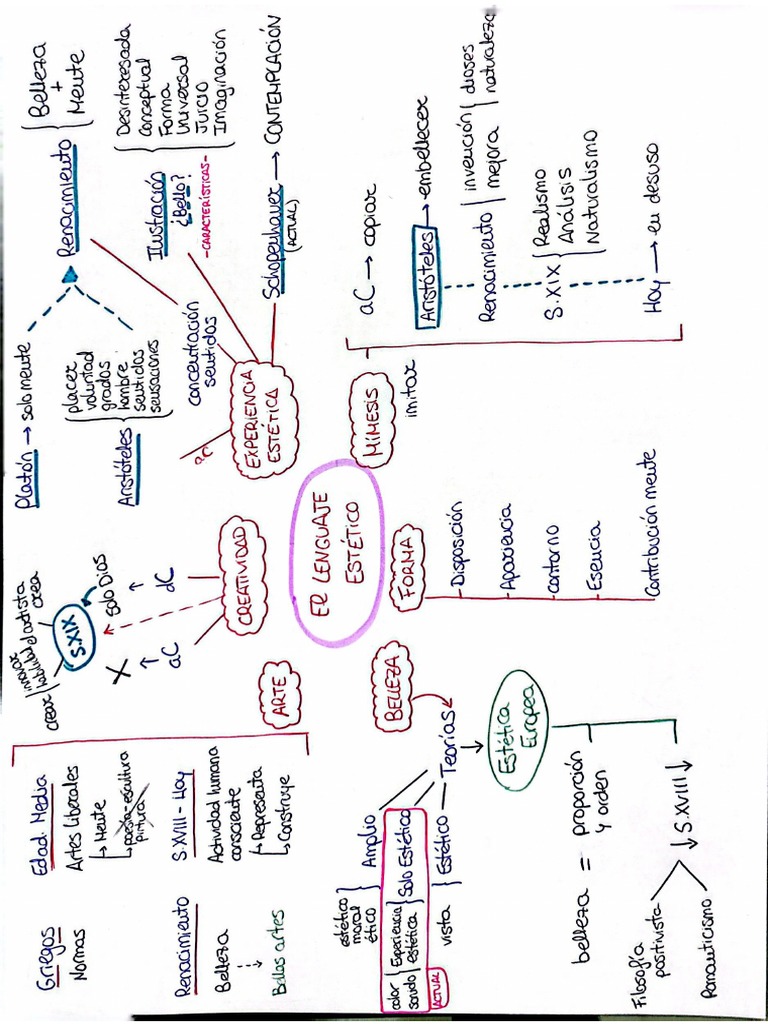 EL LENGUAJE
ESTÉTICO
ARTE
Griegos
Normas
Edad Media
Artes liberales
↳ Mente
↳ poesía-escultura
pintura
Renacimiento
Belleza
Bellas artes
S.XVIII - Hoy
Actividad humana
consciente
↳ Representa
↳ Construye
CREATIVIDAD
aC
X
dC
solo Dios
S.XIX
crear
innovar
habilidad
el artista
crea
EXPERIENCIA
ESTÉTICA
aC
Platón → solo mente
Aristóteles
placer
voluntad
grados
hombre
sentidos
sensaciones
concentración
sentidos
Renacimiento
Belleza
+
Mente
Ilustración
¿Bello?
-CARACTERÍSTICAS-
Desinteresada
Conceptual
Forma
Universal
Juicio
Imaginación
Schopenhauer → CONTEMPLACIÓN
(ACTUAL)
BELLEZA
Teorías
Amplio
estético
moral
ético
Solo Estético
Experiencia
estética
color
sonido
ACTUAL
Estético
vista
Estética
Europea
belleza = proporción
y orden
↓ S.XVIII ↓
Filosofía
positivista
Romanticismo
FORMA
Disposición
Apariencia
contorno
Esencia
Contribución mente
MÍMESIS
imitar
aC → copiar
Aristóteles → embellecer
Renacimiento
invención
mejora
dioses
naturaleza
S.XIX
Realismo
Análisis
Naturalismo
Hoy → en desuso